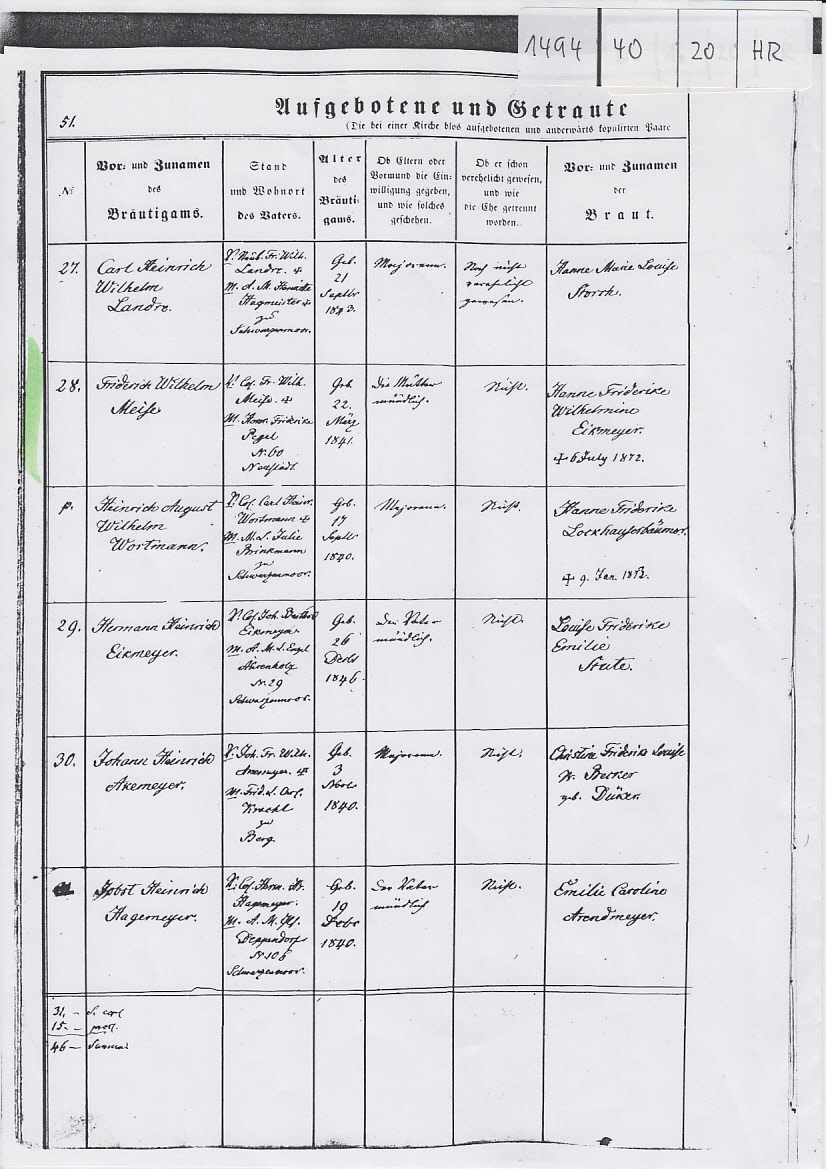 1494 40 20 HR
51.
Aufgebotene und Getraute
(Die bei einer Kirche blos aufgebotenen und anderwärts kopulirten Paare
№
Vor- und Zunamen
des
Bräutigams.
Stand
und Wohnort
des Vaters.
Alter
des
Bräuti-
gams.
Ob Eltern oder
Vormund die Ein-
willigung gegeben,
und wie solches
geschehen.
Ob er schon
verehelicht gewesen,
und wie
die Ehe getrennt
worden.
Vor- und Zunamen
der
Braut.
27.
Carl Heinrich
Wilhelm
Landre.
V. Fr. Wilh.
Landre. +
M. A. M. Henriette
Hagmeister +
zu
Schwarzenmoor.
Geb.
21
Septbr
1843.
Majorenn.
Noch nicht
verehelicht
gewesen.
Hanne Marie Louise
Storck.
28.
Friderich Wilhelm
Meise
V. Col. Fr. Wilh.
Meise. +
M. Hanne Friderike
Pegel
N. 60
Neustadt
Geb.
22.
März
1841.
Die Mutter
mündlich.
Nicht.
Hanne Friderike
Wilhelmine
Eikmeyer.
+ 6 July 1872.
p.
Heinrich August
Wilhelm
Wortmann.
V. Col. Carl Heinr.
Wortmann +
M. M. L. Julie
Brinkmann
zu
Schwarzenmoor.
Geb.
17
Septbr
1840.
Majorenn.
Nicht.
Hanne Friderike
Lockhauserbäumer.
+ 9. Jan.
29.
Hermann Heinrich
Eikmeyer.
V. Col. Joh.
Eikmeyer
M. A. M. L. Engel
Ahrenholz
N. 29
Schwarzenmoor.
Geb.
26
Decbr
1846.
Der Vater
mündlich.
Nicht.
Louise Friderike
Emilie
State.
30.
Johann Heinrich
Akemeyer.
V. Joh. Fr. Wilh.
Akemeyer. +
M. Frid. L.
Kracht
zu
Berg.
Geb.
3
Novbr
1840.
Majorenn.
Nicht.
Christine Friderike Louise
Becker
geb. Düker.
Jobst Heinrich
Hagemeyer.
V. Col. Herm. Hr.
Hagemeyer.
M. A. M. Ils.
Deppendorf
N. 106
Schwarzenmoor.
Geb.
19
Febr
1840.
Der Vater
mündlich
Nicht.
Emilie Caroline
Arendmeyer.
31. –
15. – procl.
46 – Summa